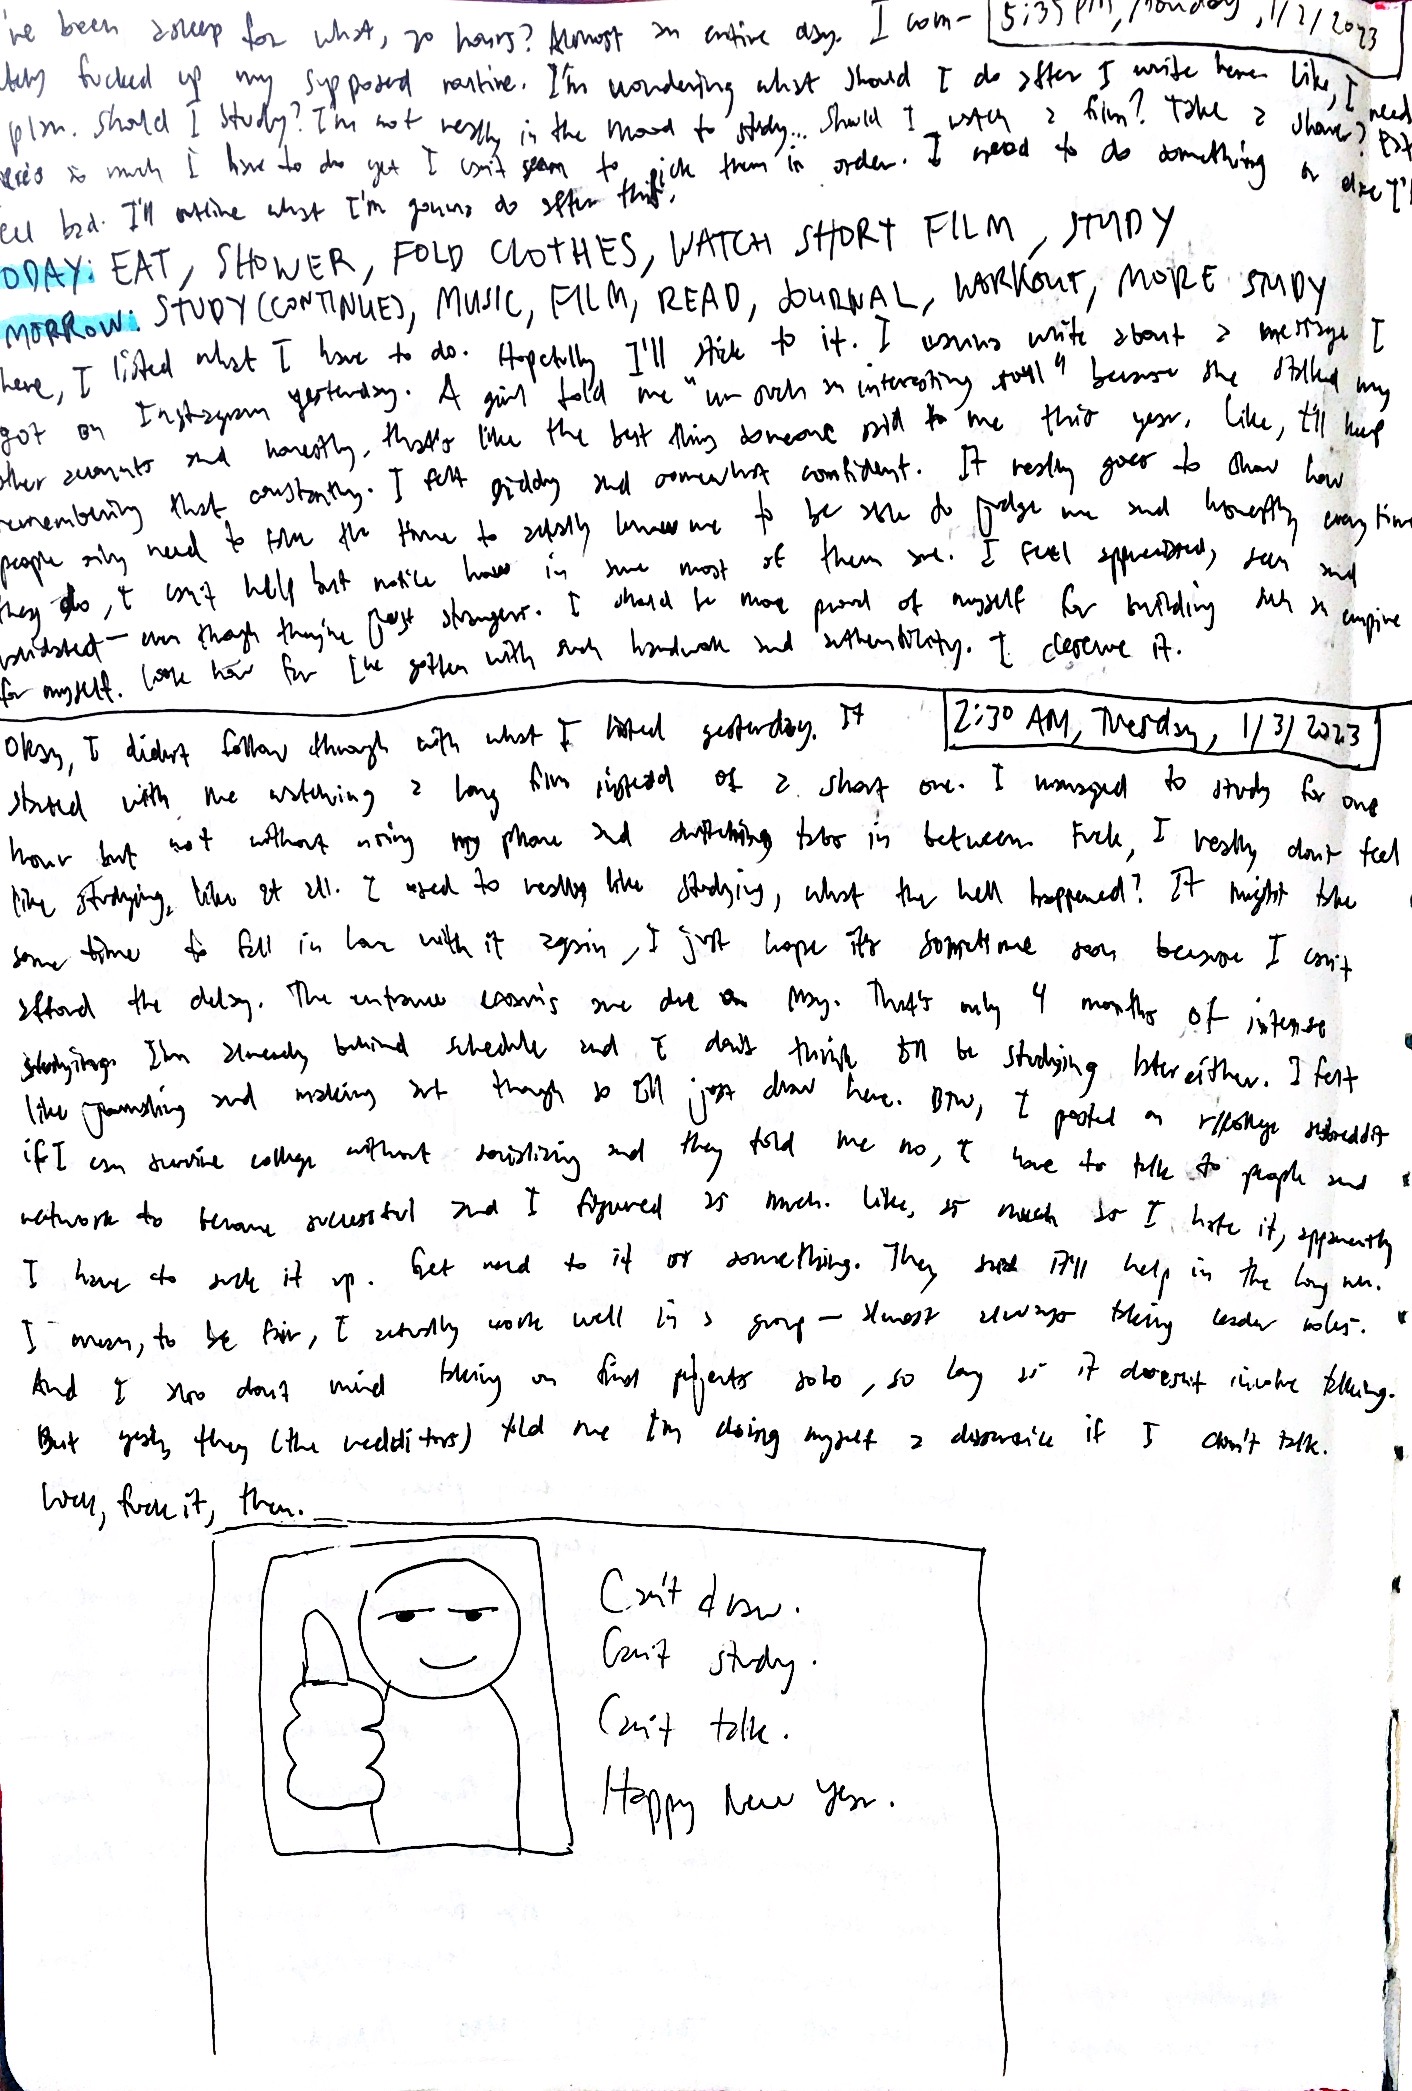 5:35 PM, Monday, 1/2/2023
've been asleep for what, 20 hours? Almost an entire day. I com-
tely fucked up my supposed routine. I'm wondering what should I do after I write here. Like, I need
plan. Should I study? I'm not really in the mood to study... Should I watch a film? Take a shower? Eat
ere's so much I have to do yet I can't seem to pick them in order. I need to do something or else I'll
eel bad. I'll outline what I'm gonna do after this.
ODAY: EAT, SHOWER, FOLD CLOTHES, WATCH SHORT FILM, STUDY
MORROW: STUDY (CONTINUE), MUSIC, FILM, READ, JOURNAL, WORKOUT, MORE STUDY
here, I listed what I have to do. Hopefully I'll stick to it. I wanna write about a message I
got on Instagram yesterday. A girl told me "ur such an interesting soul" because she stalked my
other accounts and honestly, that's like the best thing someone said to me this year. Like, I'll keep
remembering that constantly. I felt giddy and somewhat confident. It really goes to show how
people only need to take the time to actually know me to be able to judge me and honestly every time
they do, I can't help but notice how in awe most of them are. I feel appreciated, seen and
validated — even though they're just strangers. I should be more proud of myself for building such an empire
for myself. Look how far I've gotten with such hardwork and authenticity. I deserve it.
2:30 AM, Tuesday, 1/3/2023
Okay, I didn't follow through with what I listed yesterday. It
started with me watching a long film instead of a short one. I managed to study for one
hour but not without using my phone and switching tabs in between. Fuck, I really don't feel
like studying, like at all. I used to really like studying, what the hell happened? It might take
some time to fall in love with it again, I just hope it's sometime soon because I can't
afford the delay. The entrance exams are due on May. That's only 4 months of intense
studying. I'm already behind schedule and I don't think I'll be studying later either. I felt
like journaling and making art though so I'll just draw here. Btw, I posted on r/college subreddit
if I can survive college without socializing and they told me no, I have to talk to people and
network to become successful and I figured as much. Like, as much as I hate it, apparently
I have to suck it up. Get used to it or something. They said it'll help in the long run.
I mean, to be fair, I actually work well in a group — almost always taking leader roles.
And I also don't mind taking on final projects solo, so long as it doesn't involve talking.
But yeah, they (the redditors) told me I'm doing myself a disservice if I don't talk.
Well, fuck it, then.
Can't draw.
Can't study.
Can't talk.
Happy New Year.